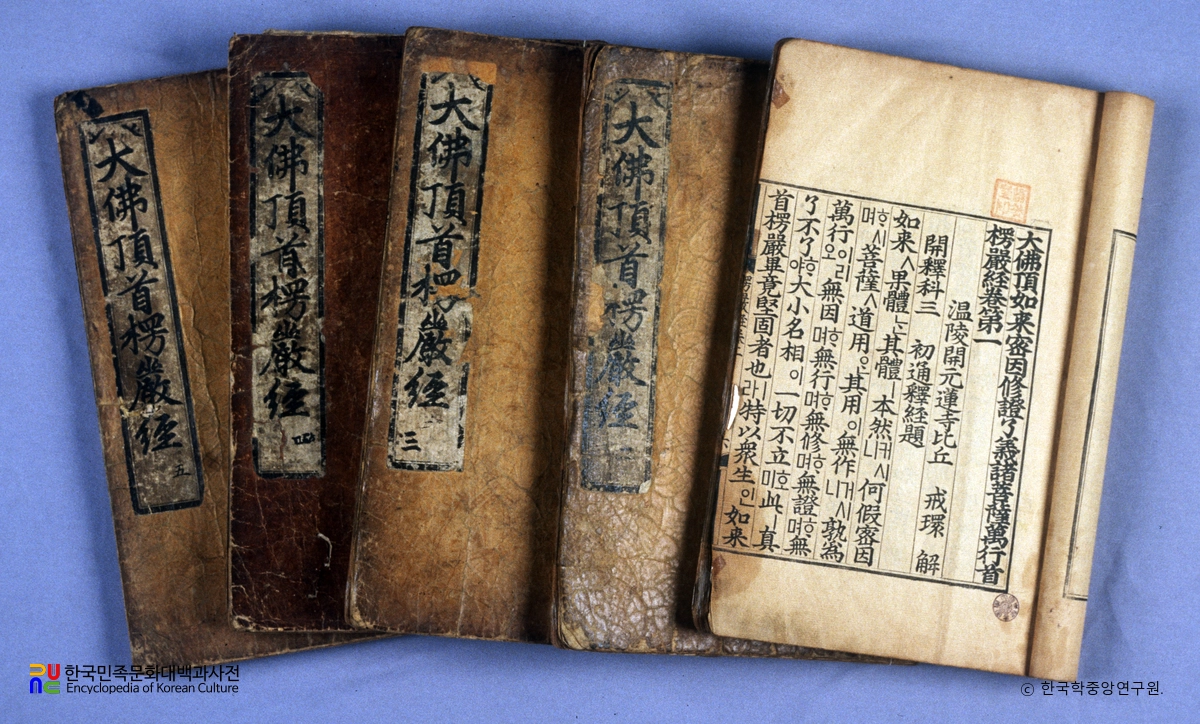 大佛頂首楞嚴經 五
大佛頂首楞嚴經 四
大佛頂首楞嚴經 三
大佛頂首楞嚴經
大佛頂如来密因修證了義諸菩薩萬行首
楞嚴經卷第一
温陵開元蓮寺比丘 戒環 解
開釋科三 初通釋經題
如来ㅅ果體ᄂᆞᆫ其體ㅣ本然커시니何假密因
며ᄒᆞ시菩薩ㅅ道用ᄋᆞᆫ其用ㅣ無作거시니孰為
萬行이리오無因ᄒᆞ며無行ᄒᆞ며無修ᄒᆞ며無證ᄒᆞ며無
了不了ᄒᆞ야大小名相ᄋᆞᆯ一切不立호미此ㅣ真
首楞嚴畢竟堅固者也ㅣ라特以衆生인如来
한국민족문화대백과사전
Encyclopedia of Korean Culture
© 한국학중앙연구원.